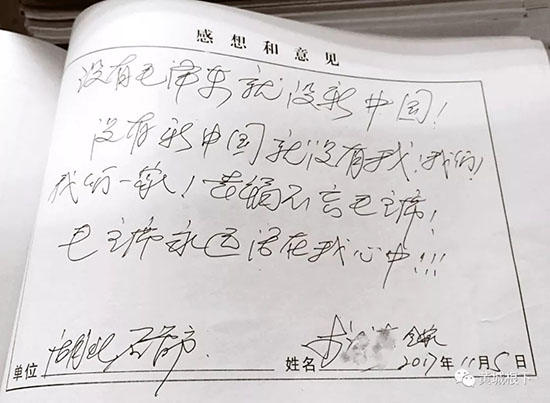 感想和意见
没有毛泽东就没新中国!
没有新中国就没有我!我们!
我们一家!幸福不忘毛主席!
毛主席永远活在我心中!!!
单位 湖北石首市.
姓名 全家
2017年11月5日
城根下